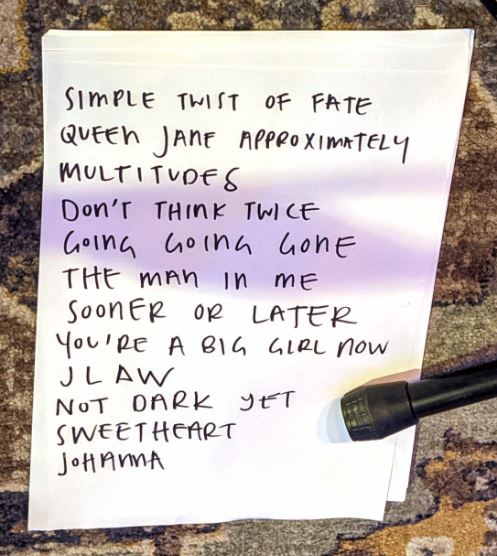 SIMPLE TWIST OF FATE
QUEEN JANE APPROXIMATELY
MULTITUDES
DON'T THINK TWICE
GOING GOING GONE
THE MAN IN ME
SOONER OR LATER
YOU'RE A BIG GIRL NOW
JLAW
NOT DARK YET
SWEETHEART
JOHANNA